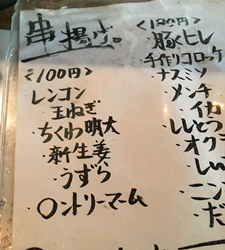 串揚げ。
<100円>
レンコン
玉ねぎ
・ちくわ明太
・新生姜
・うずら
・〇ントリーマーム
<180円>
豚ヒレ
手作りコロッケ
ナスミソ
メンチ
イカ
ししとう
オク
しい
ニン
だ